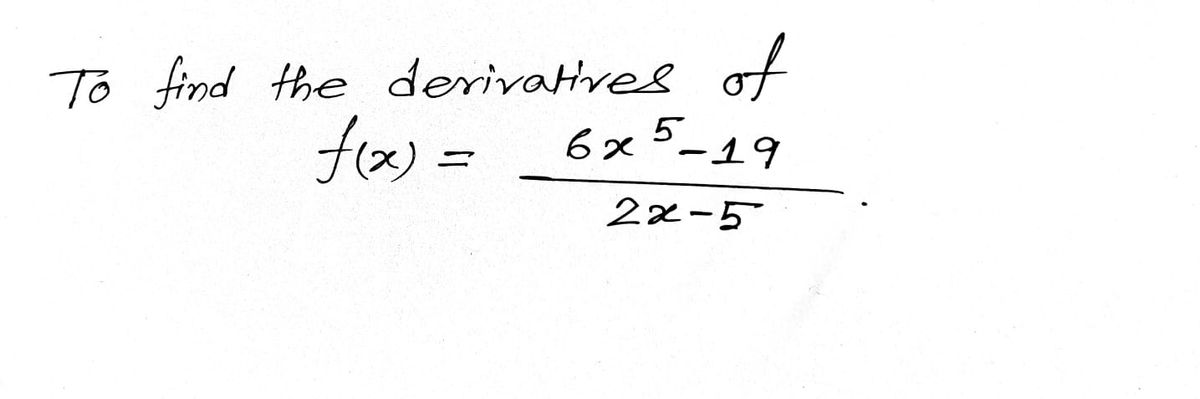 To find the derivatives of
f(x) = 6x^5-19
2x-5 .